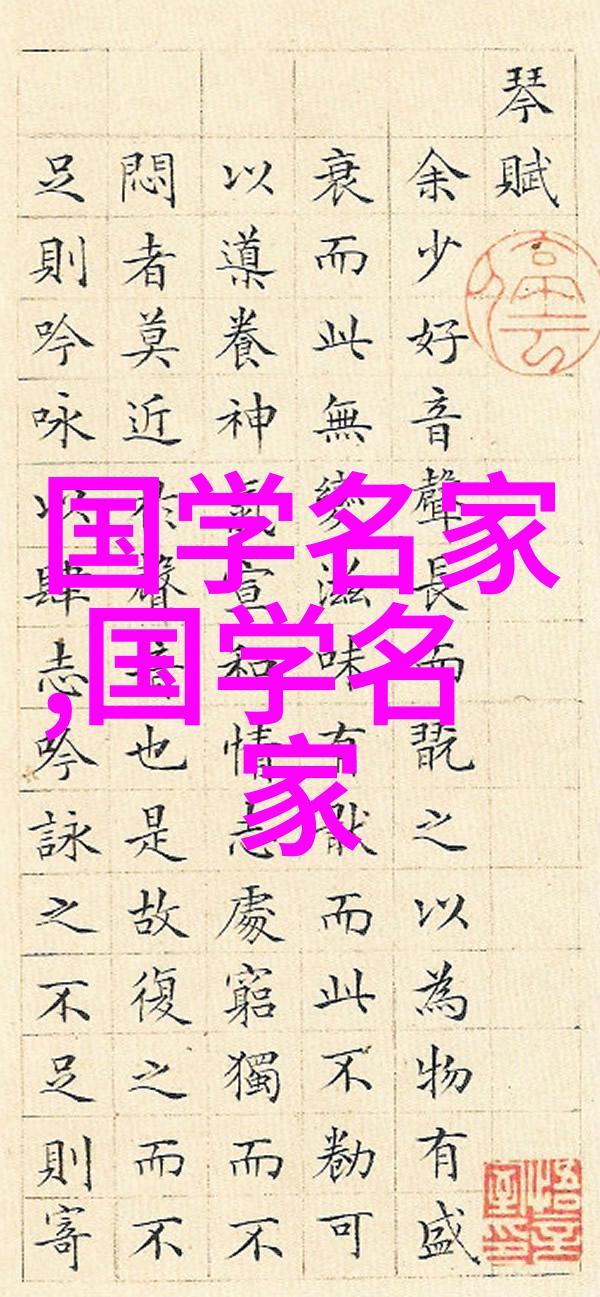 琴賦
余少好音聲長而翫之以為物有盛
衰而此無變滋味有猒而此不勌可
以導養神氣宣和情志處窮獨而不
悶者莫近於聲音也是故復之而不
足則吟咏以肆志吟詠之不足則寄
国学名家
,国学名
家